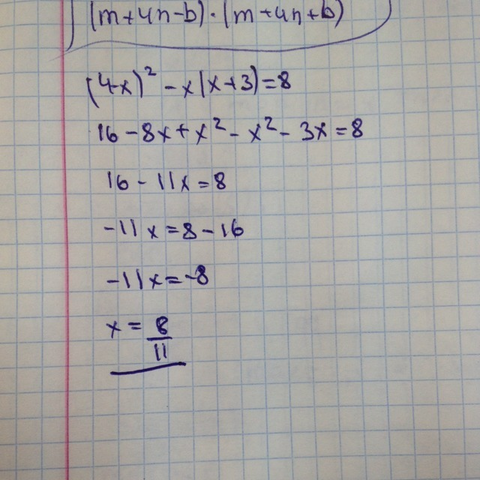 (m+4n-b)·(m+4n+b)
(4-x)² - x(x+3)=8
16-8x+x²-x²-3x=8
16-11x=8
-11x=8-16
-11x=-8
x=8/11